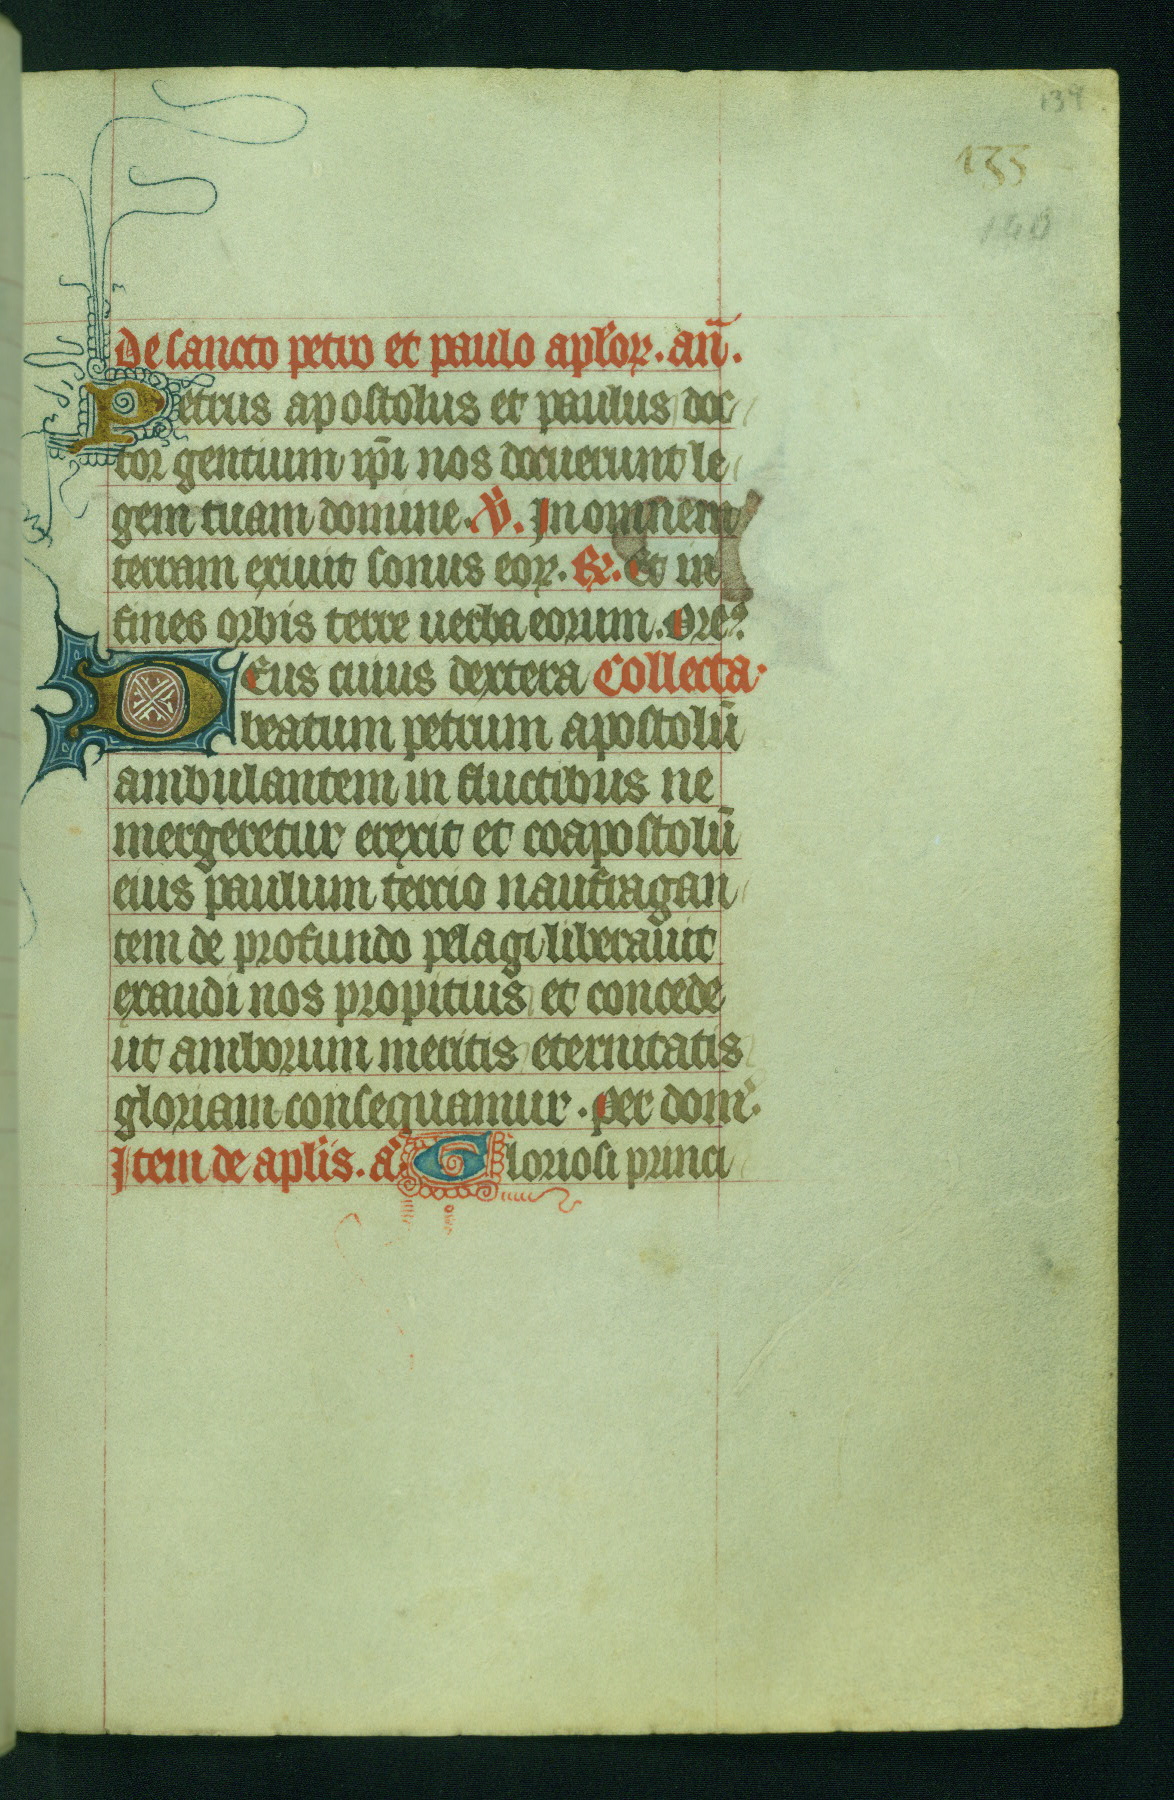 139
133
140
De sancto petro et paulo apl'oꝝ. an̄.
Petrus apostolus et paulus doc
tor gentium ip̄i nos docuerunt le
gem tuam domine. V̄. In omnem
terram exiuit sonus eoꝝ. R̄. Et in
fines orbis terre uerba eorum. Ore?
Deus cuius dextera Collecta.
beatum petrum apostolū
ambulantem in fluctibus ne
mergeretur erexit et coapostolū
eius paulum tercio naufragan
tem de profundo pelagi liberauit
exaudi nos propitius et concede
ut amborum meritis eternitatis
gloriam consequamur. Per dom'.
Item de apl'is. a' Gloriosi princi